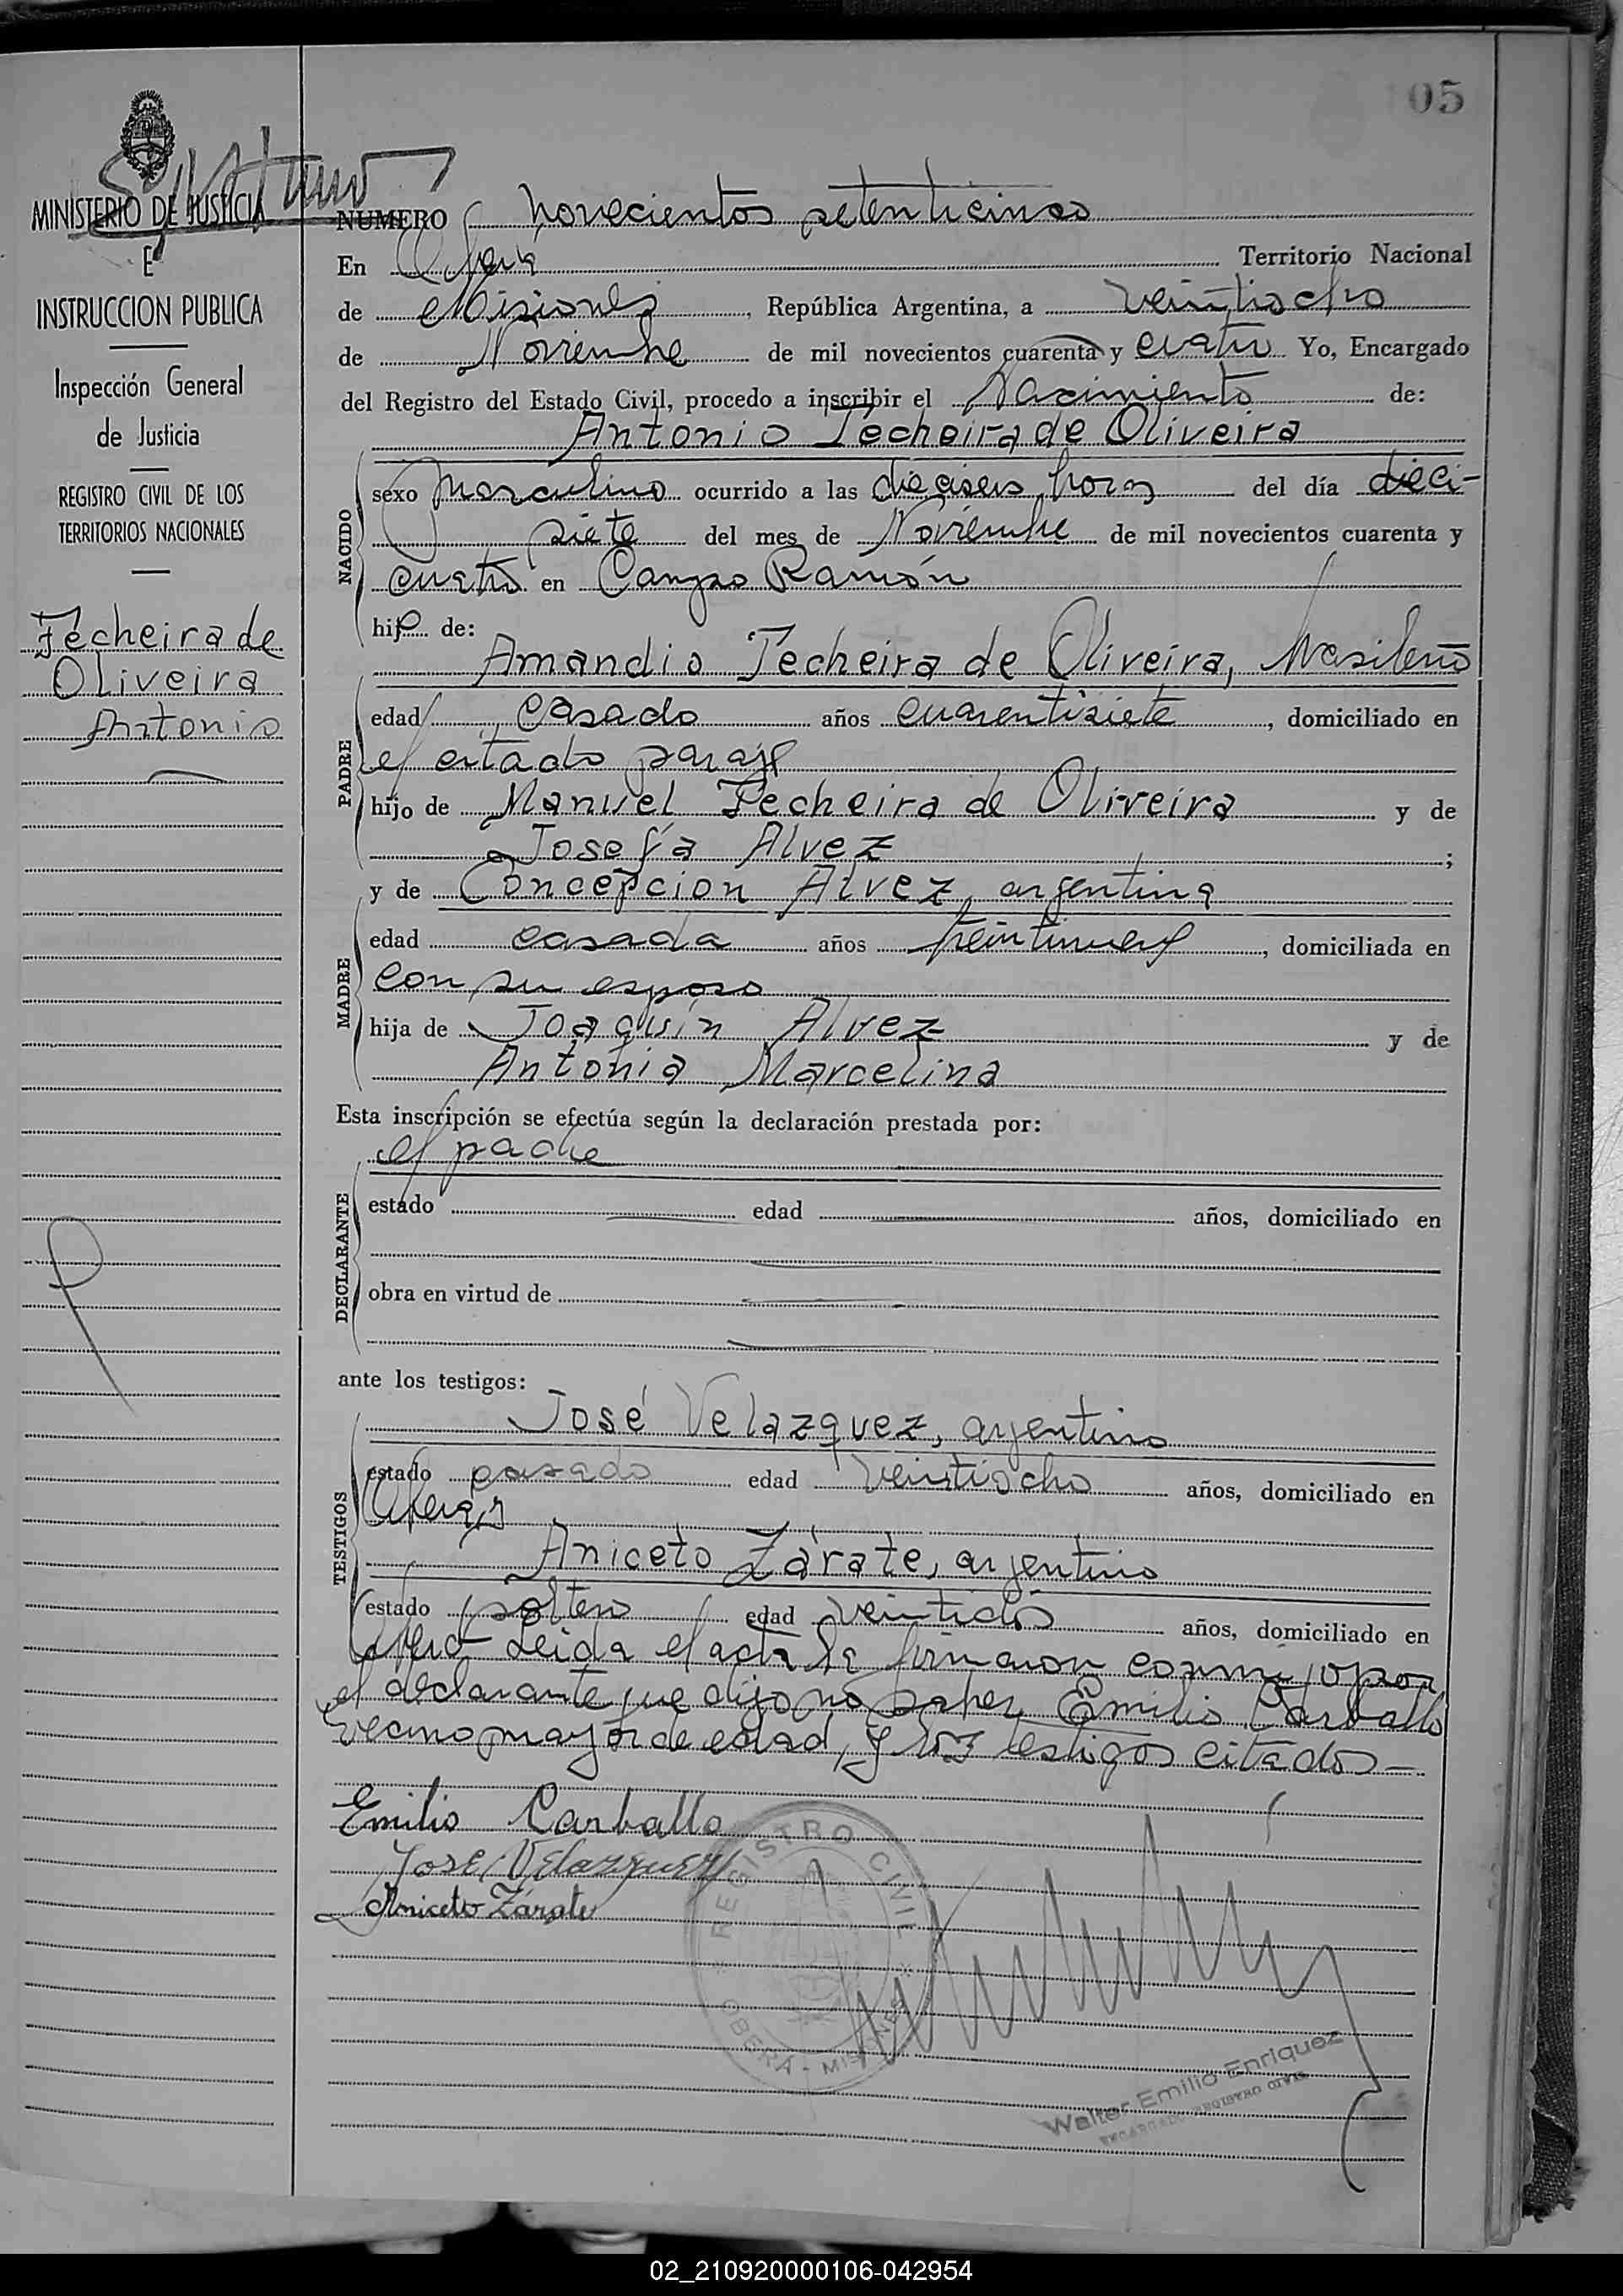 05
MINISTERIO DE JUSTICIA
E
INSTRUCCION PUBLICA
Inspección General
de Justicia
REGISTRO CIVIL DE LOS
TERRITORIOS NACIONALES
Techeira de
Oliveira
Antonio
NUMERO novecientos setenticinco
En Oberá Territorio Nacional
de Misiones, República Argentina, a veintiocho
de Noviembre de mil novecientos cuarenta y cuatro Yo, Encargado
del Registro del Estado Civil, procedo a inscribir el Nacimiento de:
Antonio Techeira de Oliveira
NACIDO
sexo masculino ocurrido a las dieciseis horas del día dieci-
siete del mes de Noviembre de mil novecientos cuarenta y
cuatro en Campo Ramón
hijo de:
Amandio Techeira de Oliveira, brasileño
PADRE
edad casado años cuarentisiete, domiciliado en
el citado paraje
hijo de Manuel Techeira de Oliveira y de
Josefa Alvez ;
y de Concepción Alvez, argentina
MADRE
edad casada años treintinueve, domiciliada en
con su esposo
hija de Joaquín Alvez y de
Antonia Marcelina
Esta inscripción se efectúa según la declaración prestada por:
el padre
DECLARANTE
estado edad años, domiciliado en
obra en virtud de
ante los testigos:
José Velazquez, argentino
TESTIGOS
estado casado edad veintiocho años, domiciliado en
Oberá, y
Aniceto Zárate, argentino
estado soltero edad veintidós años, domiciliado en
Oberá- Leida el acta la firmaron conmigo por
el declarante que dijo no saber, Emilio Carballo
vecino mayor de edad, y los testigos citados-
Emilio Carballo
Jose Velazquez
Aniceto Zárate
REGISTRO CIVIL
OBERÁ - MISIONES
Walter Emilio Enriquez
ENCARGADO REGISTRO CIVIL
02_210920000106-042954